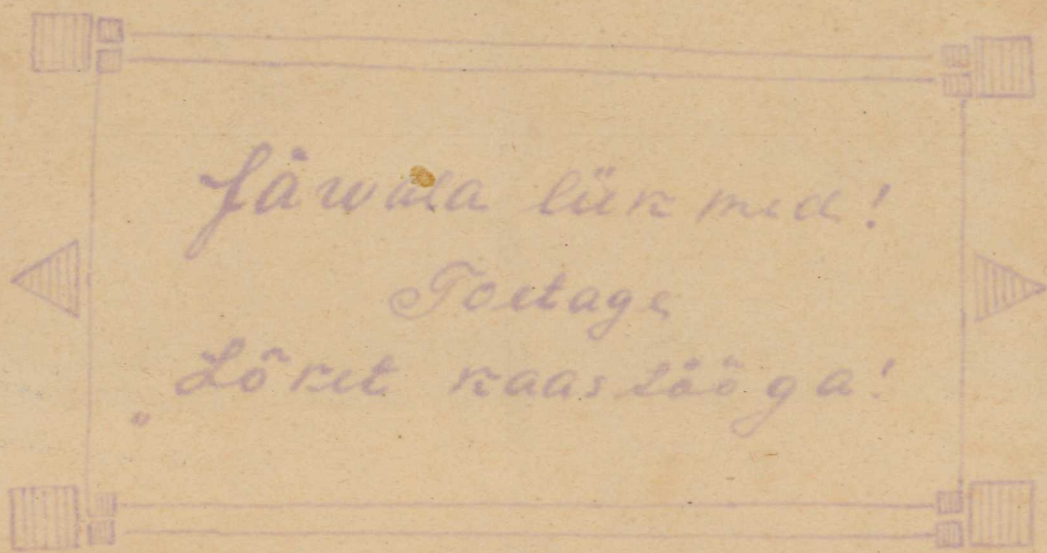 Jäwala liikmed!
Toetage
„Lõket kaastööga!